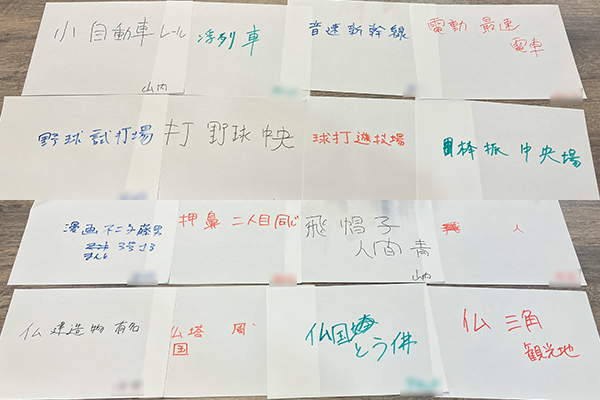 小 自動車 レール
山内
浮列車
音速新幹線
電動 最速
電車
野球 試打場
打 野球 中央
球打遊技場
棒振 中央場
漫画 不二子藤
押鼻 二人目同じ
飛 帽子
人間 青
山内
飛 人
仏 建造物 有名
仏塔 風
国
仏国
とう佛
仏 三角
観光地